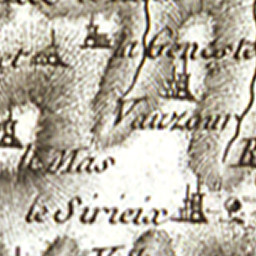 la Geneste
Vauzour
le Mas
le Sirieix